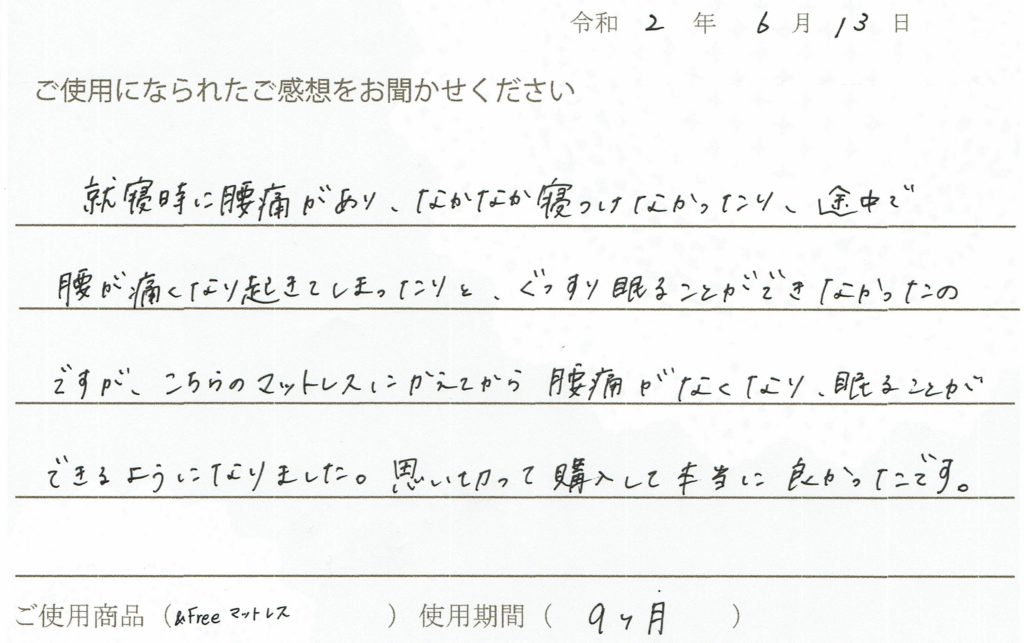 令和 2 年 6 月 13 日
ご使用になられたご感想をお聞かせください
就寝時に腰痛があり、なかなか寝つけなかったり、途中で
腰が痛くなり起きてしまったりと、ぐっすり眠ることができなかったの
ですが、こちらのマットレスにかえてから腰痛がなくなり、眠ることが
できるようになりました。思い切って購入して本当に良かったです。
ご使用商品（&Free マットレス）使用期間（9ヶ月）